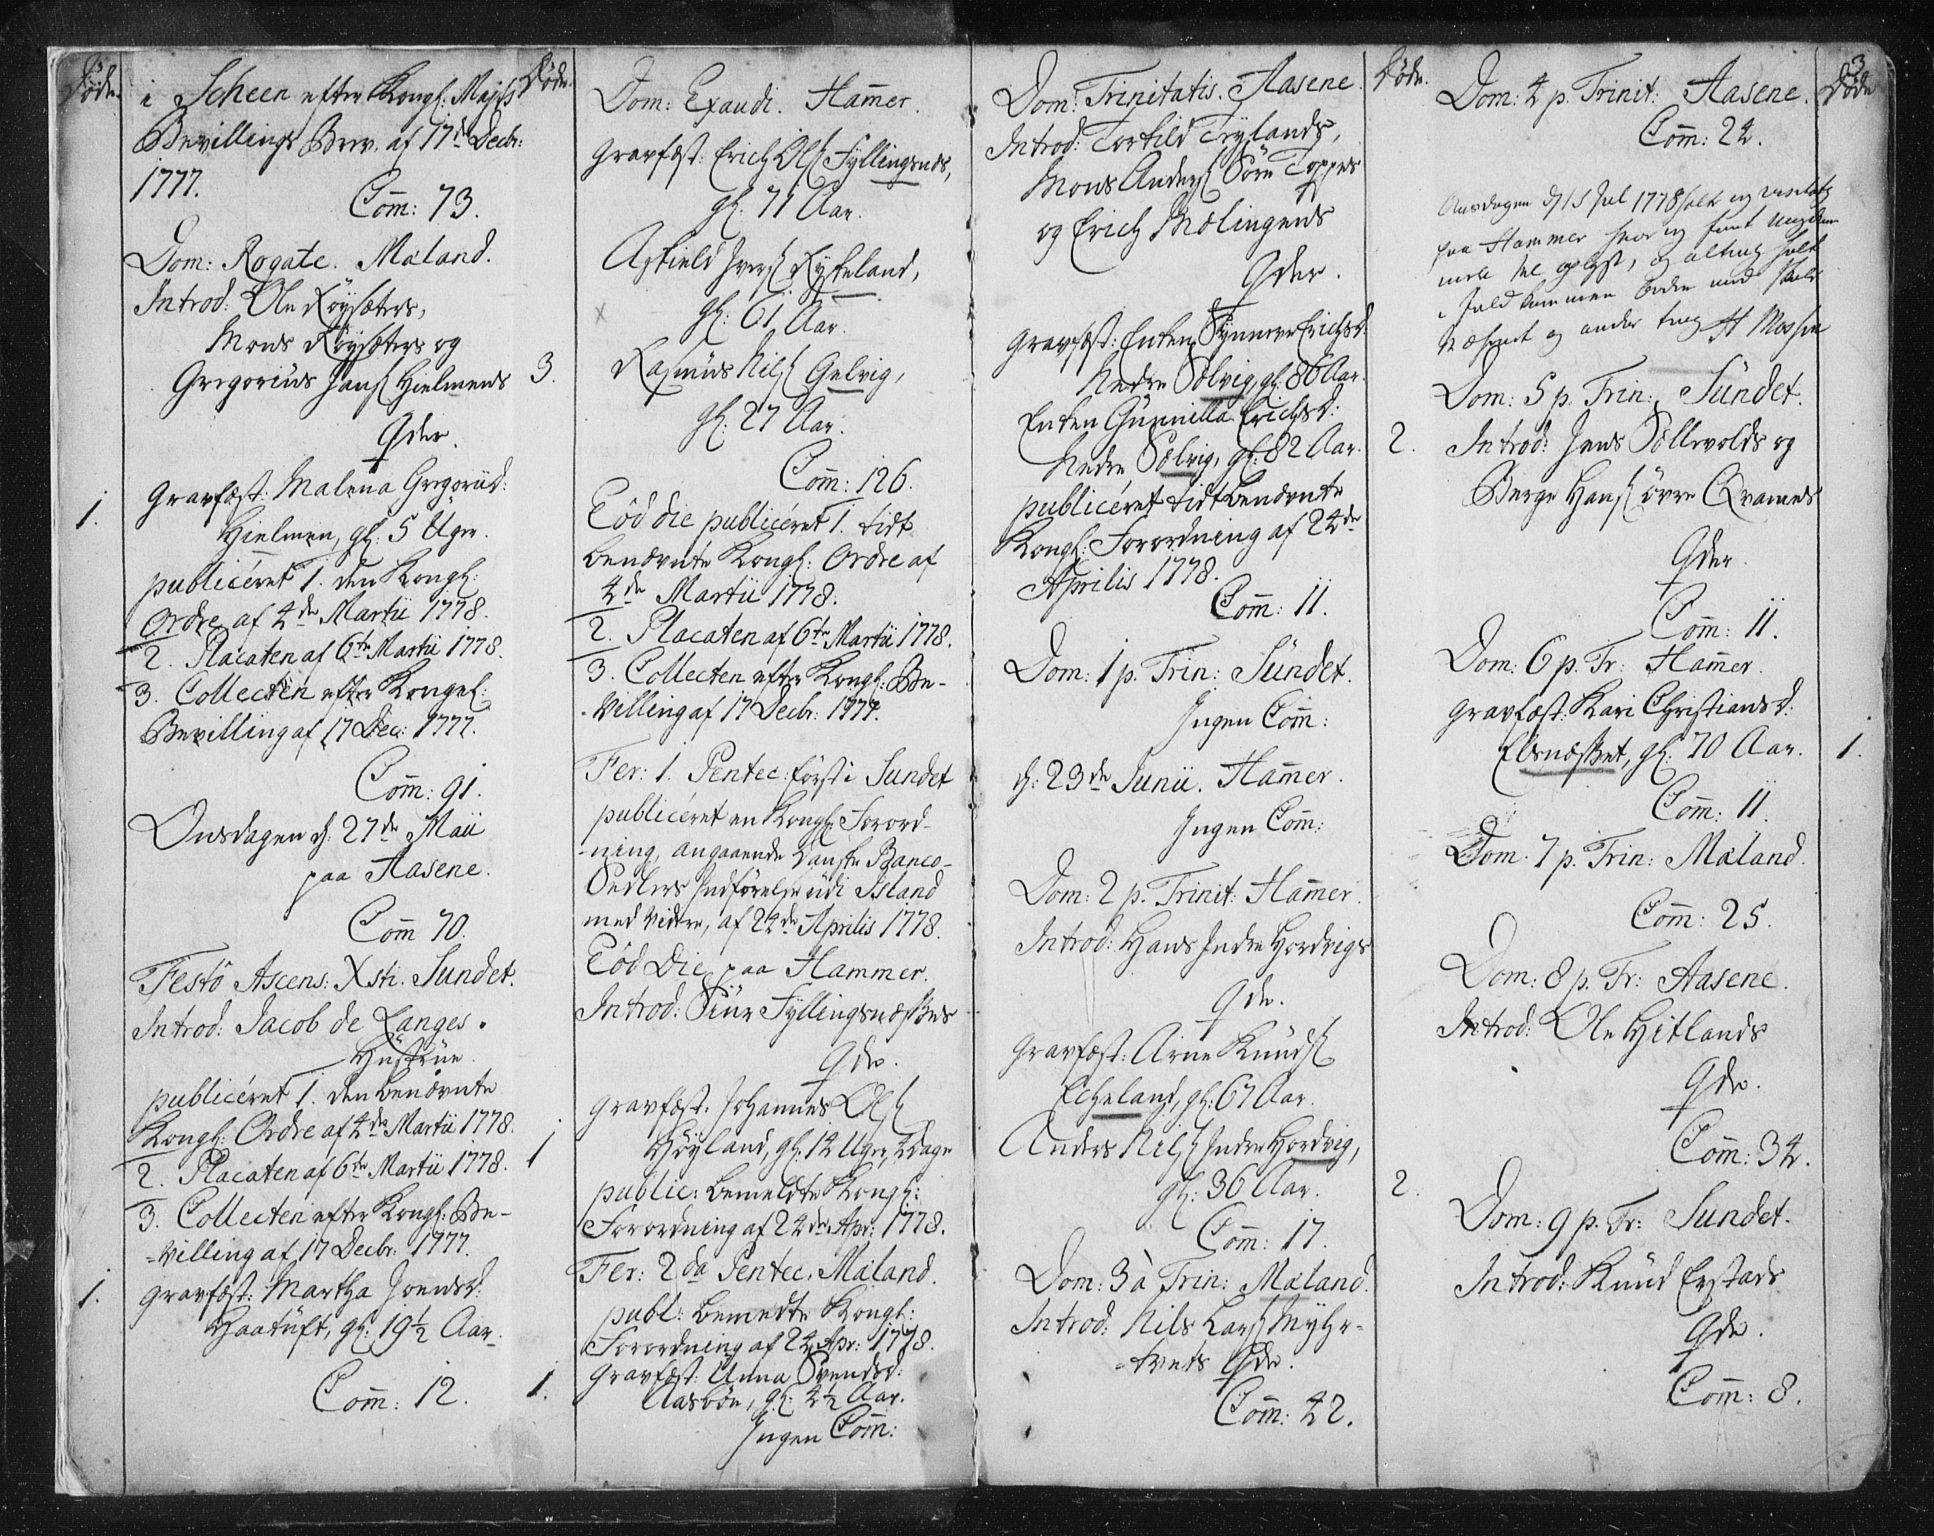 Døde.
i Scheen efter Kongl: Majts
Bevillings Brev. af 17de Decbr:
1777.
Com̄: 73.
Dom: Rogate. Mæland.
Introd: Ole Røysæters,
Mons Røysæters og
Gregorius Hans. Hielmens
Qder.
1.
Gravfæst: Malena Gregoriid:
Hielmen, gl: 5 Uger.
publiceret 1. den Kongl:
Ordre af 4de Martii 1778.
2. Placaten af 6te Martii 1778.
3. Collecten efter Kongel:
Bevilling af 17 Dec: 1777.
Com̄: 91.
Onsdagen d: 27de Maii
paa Aasene.
Com̄ 70.
Festo Ascens: Xsti. Sundet.
Introd: Jacob de Langes
Hüstrüe.
publiceret 1. den benævnte
Kongl: Ordre af 4de Martii 1778.
2. Placaten af 6te Martii 1778.
3. Collecten efter Kongl: Be-
-villing af 17 Decbr: 1777.
1.
Gravfæst: Martha Joensd:
Haatuft, gl: 19½ Aar.
Com̄: 12.
Døde.
Dom: Exaudi. Ham̄er.
Gravfæst: Erich Ols. Fyllingsnæs,
gl: 71 Aar.
Askield Ivers. Rykeland,
gl: 61 Aar.
3.
Rasmus Nils. Gelvig,
gl: 27 Aar.
Com̄: 126.
Eod die publiceret 1. tidt
benævnte Kongl: Ordre af
4de Martii 1778.
2. Placaten af 6te Martii 1778.
3. Collecten efter Kongl: Be-
-villing af 17 Decbr: 1777.
Fer: 1. Pentec: først i Sundet
publiceret en Kongl: Forord-
-ning, angaaende danske Banco-
Sedlers Indførelse udi Island
med videre, af 24de Aprilis 1778.
Eod Die paa Hammer.
Introd: Siur Fyllingsnæsses
Qde.
Gravfæst: Johannes Ols.
1
Høyland, gl: 14 Uger, 4 dage
public: bemeldte Kongl:
Forordning af 24de Apr: 1778.
Fer: 2da Pentec. Mæland.
publ: bemeldte Kongl:
Forordning af 24 Apr: 1778.
Gravfæst: Anna Svendsd:
1.
Aasbøe, gl: 4½ Aar.
Ingen Com̄:
Dom: Trinitatis. Aasene.
Introd: Torkild Trylands,
Mons Anders. Søre Toppes
og Erich Mælingens
Qder.
Gravfæst: Enken Synneve Erichsd:
Nedre Sølvig, gl: 86 Aar.
Enken Gunnilla Erichsd:
Nedre Sølvig, gl: 82 Aar.
publiceret tidtbenævnte
Kongl: Forordning af 24de
Aprilis 1778.
Com̄: 11.
Dom: 1 p. Trin: Sündet.
Ingen Com̄:
d: 23de Junii. Ham̄er.
Ingen Com̄:
Dom: 2 p. Trinit: Ham̄er.
Introd: Hans Indre Hordvigs
Qde.
Gravfæst: Arne Knuds.
Echeland, gl: 67 Aar.
Anders Nils. Indre Hordvig,
gl: 36 Aar.
Com̄: 17.
Dom: 3 à Trin: Mæland.
Introd: Nils Lars. Myhr-
-tvets Qde.
Com̄: 42.
Døde.
2.
2.
3
Døde
Dom: 4 p. Trinit: Aasene.
Com̄: 24.
Onsdagen d 15 Jul 1778 holt jeg visitatz
paa Hammer hvor jeg fant Ungdommen
vel oplyst, og alting holt
i fuldkommen orden med Skole
Væsenet og andre ting
Dom: 5 p. Trin: Sündet.
Introd: Jens Sollevolds og
Børge Hans. øvre Qvames
Qder.
Com̄: 11.
Dom: 6 p. Tr: Ham̄er.
Gravfæst: Kari Christiansd:
1.
Ebsnæsset, gl: 70 Aar.
Com̄: 11.
Dom. 7 p. Trin: Mæland.
Com̄: 25.
Dom: 8 p. Tr: Aasene.
Introd: Ole Hitlands
Qde.
Com̄: 34.
Dom: 9 p. Tr: Sundet.
Introd: Knud Erstads
Qde.
Com̄: 8.